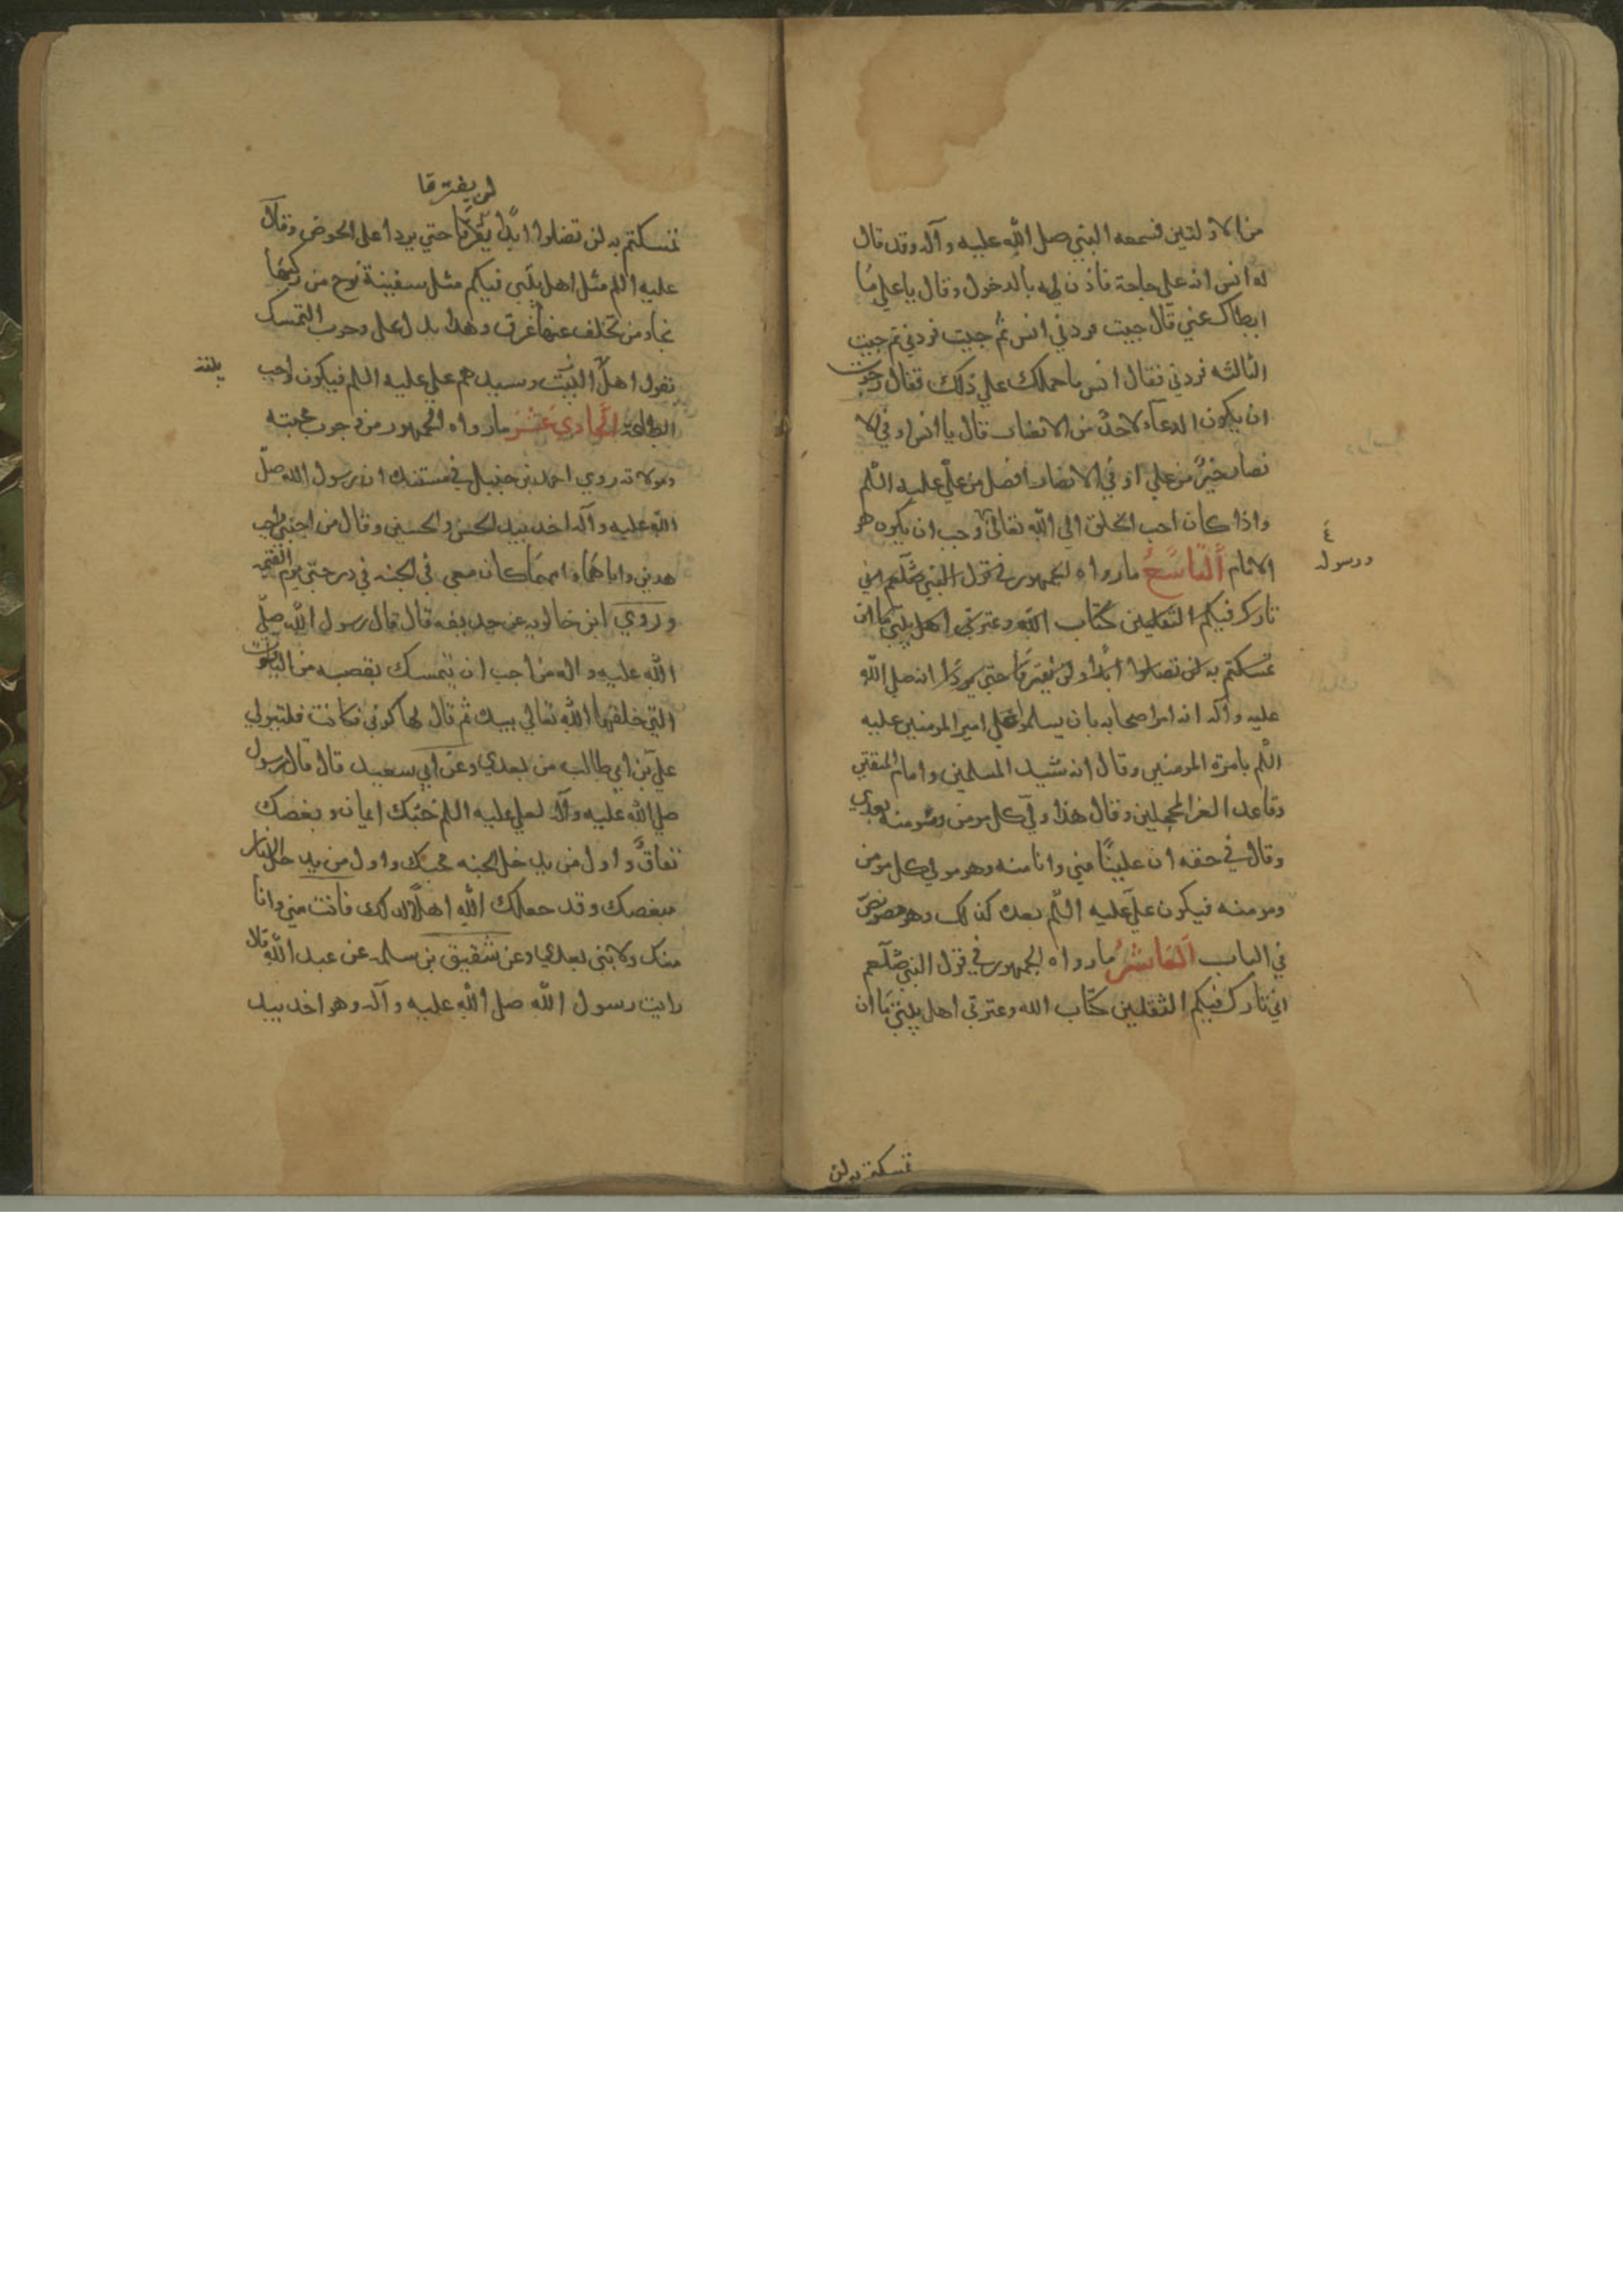 من الاولتين فسمعه النبي صلى الله عليه وآله وقد قال
له انس انه على حاجة فاذن له بالدخول وقال يا علي ما
ابطاك عني قال جيت فردني انس ثم جيت فردني ثم جيت
الثالثه فردني فقال انس ما حملك علي ذلك فقال رجوت
ان يكون الدعاء لاحد من الانصار قال يا انس او في الا
نصار خير من علي او في الانصار افضل من علي عليه السلم
واذا كان احب الخلق الي الله تعالى وجب ان يكون هو
٤
ورسوله
الامام التاسع ما رواه الجمهور في قول النبي صلعم اني
تارك فيكم الثقلين كتاب الله وعترتي اهل بيتي ما ان
تمسكتم به لن تضلوا ابدا ولن يفترقا حتي يردا انه صلي الله
عليه وآله انه امر اصحابه بان يسلموا علي امير المومنين عليه
السلم بامرة المومنين وقال انه سيد المسلمين وامام المتقين
وقاعد الغر المحجلين وقال هذا ولي كل مومن ومومنه بعدي
وقال في حقه ان عليًا مني وانا منه وهو مولي كل مومن
ومومنه فيكون علي عليه السلم بعده كذلك وهو نص
في الباب العاشر ما رواه الجمهور في قول النبي صلعم
اني تارك فيكم الثقلين كتاب الله وعترتي اهل بيتي ما ان
تمسكتم به لن
لن يفترقا
تمسكتم به لن تضلوا ابدًا حتي يردا على الحوض وقال
عليه السلم مثل اهل بيتي فيكم مثل سفينة نوح من ركبها
نجا ومن تخلف عنها غرق وهذا يدل على وجوب التمسك
بقول اهل البيت وسيدهم علي عليه السلم فيكون واجب
الطاعة الحادي عشر ما رواه الجمهور من وجوب محبته
ومولاته روي احمد بن حنبل في مسنده ان رسول الله صلى
الله عليه وآله اخذ بيد الحسن والحسين وقال من احبني واحب
هذين واباهما وامهما كان معي في الجنه في درجتي يوم القيمه
وروي ابن خالويه عن حذيفه قال قال رسول الله صلى
الله عليه واله من احب ان يتمسك بقصبه من الياقوت
التي خلقها الله تعالي بيده ثم قال لها كوني فكانت فليتولي
علي بن ابي طالب من بعدي وعن ابي سعيد قال قال رسول
صلي الله عليه وآله لعلي عليه السلم حبك ايمان وبغضك
نفاق واول من يدخل الجنه محبك واول من يدخل النار
مبغضك وقد جعلك الله اهلا لذلك فانت مني وانا
منك ولا نبي بعدي وعن شقيق بن سلمه عن عبد الله قال
رايت رسول الله صلى الله عليه وآله وهو اخذ بيد